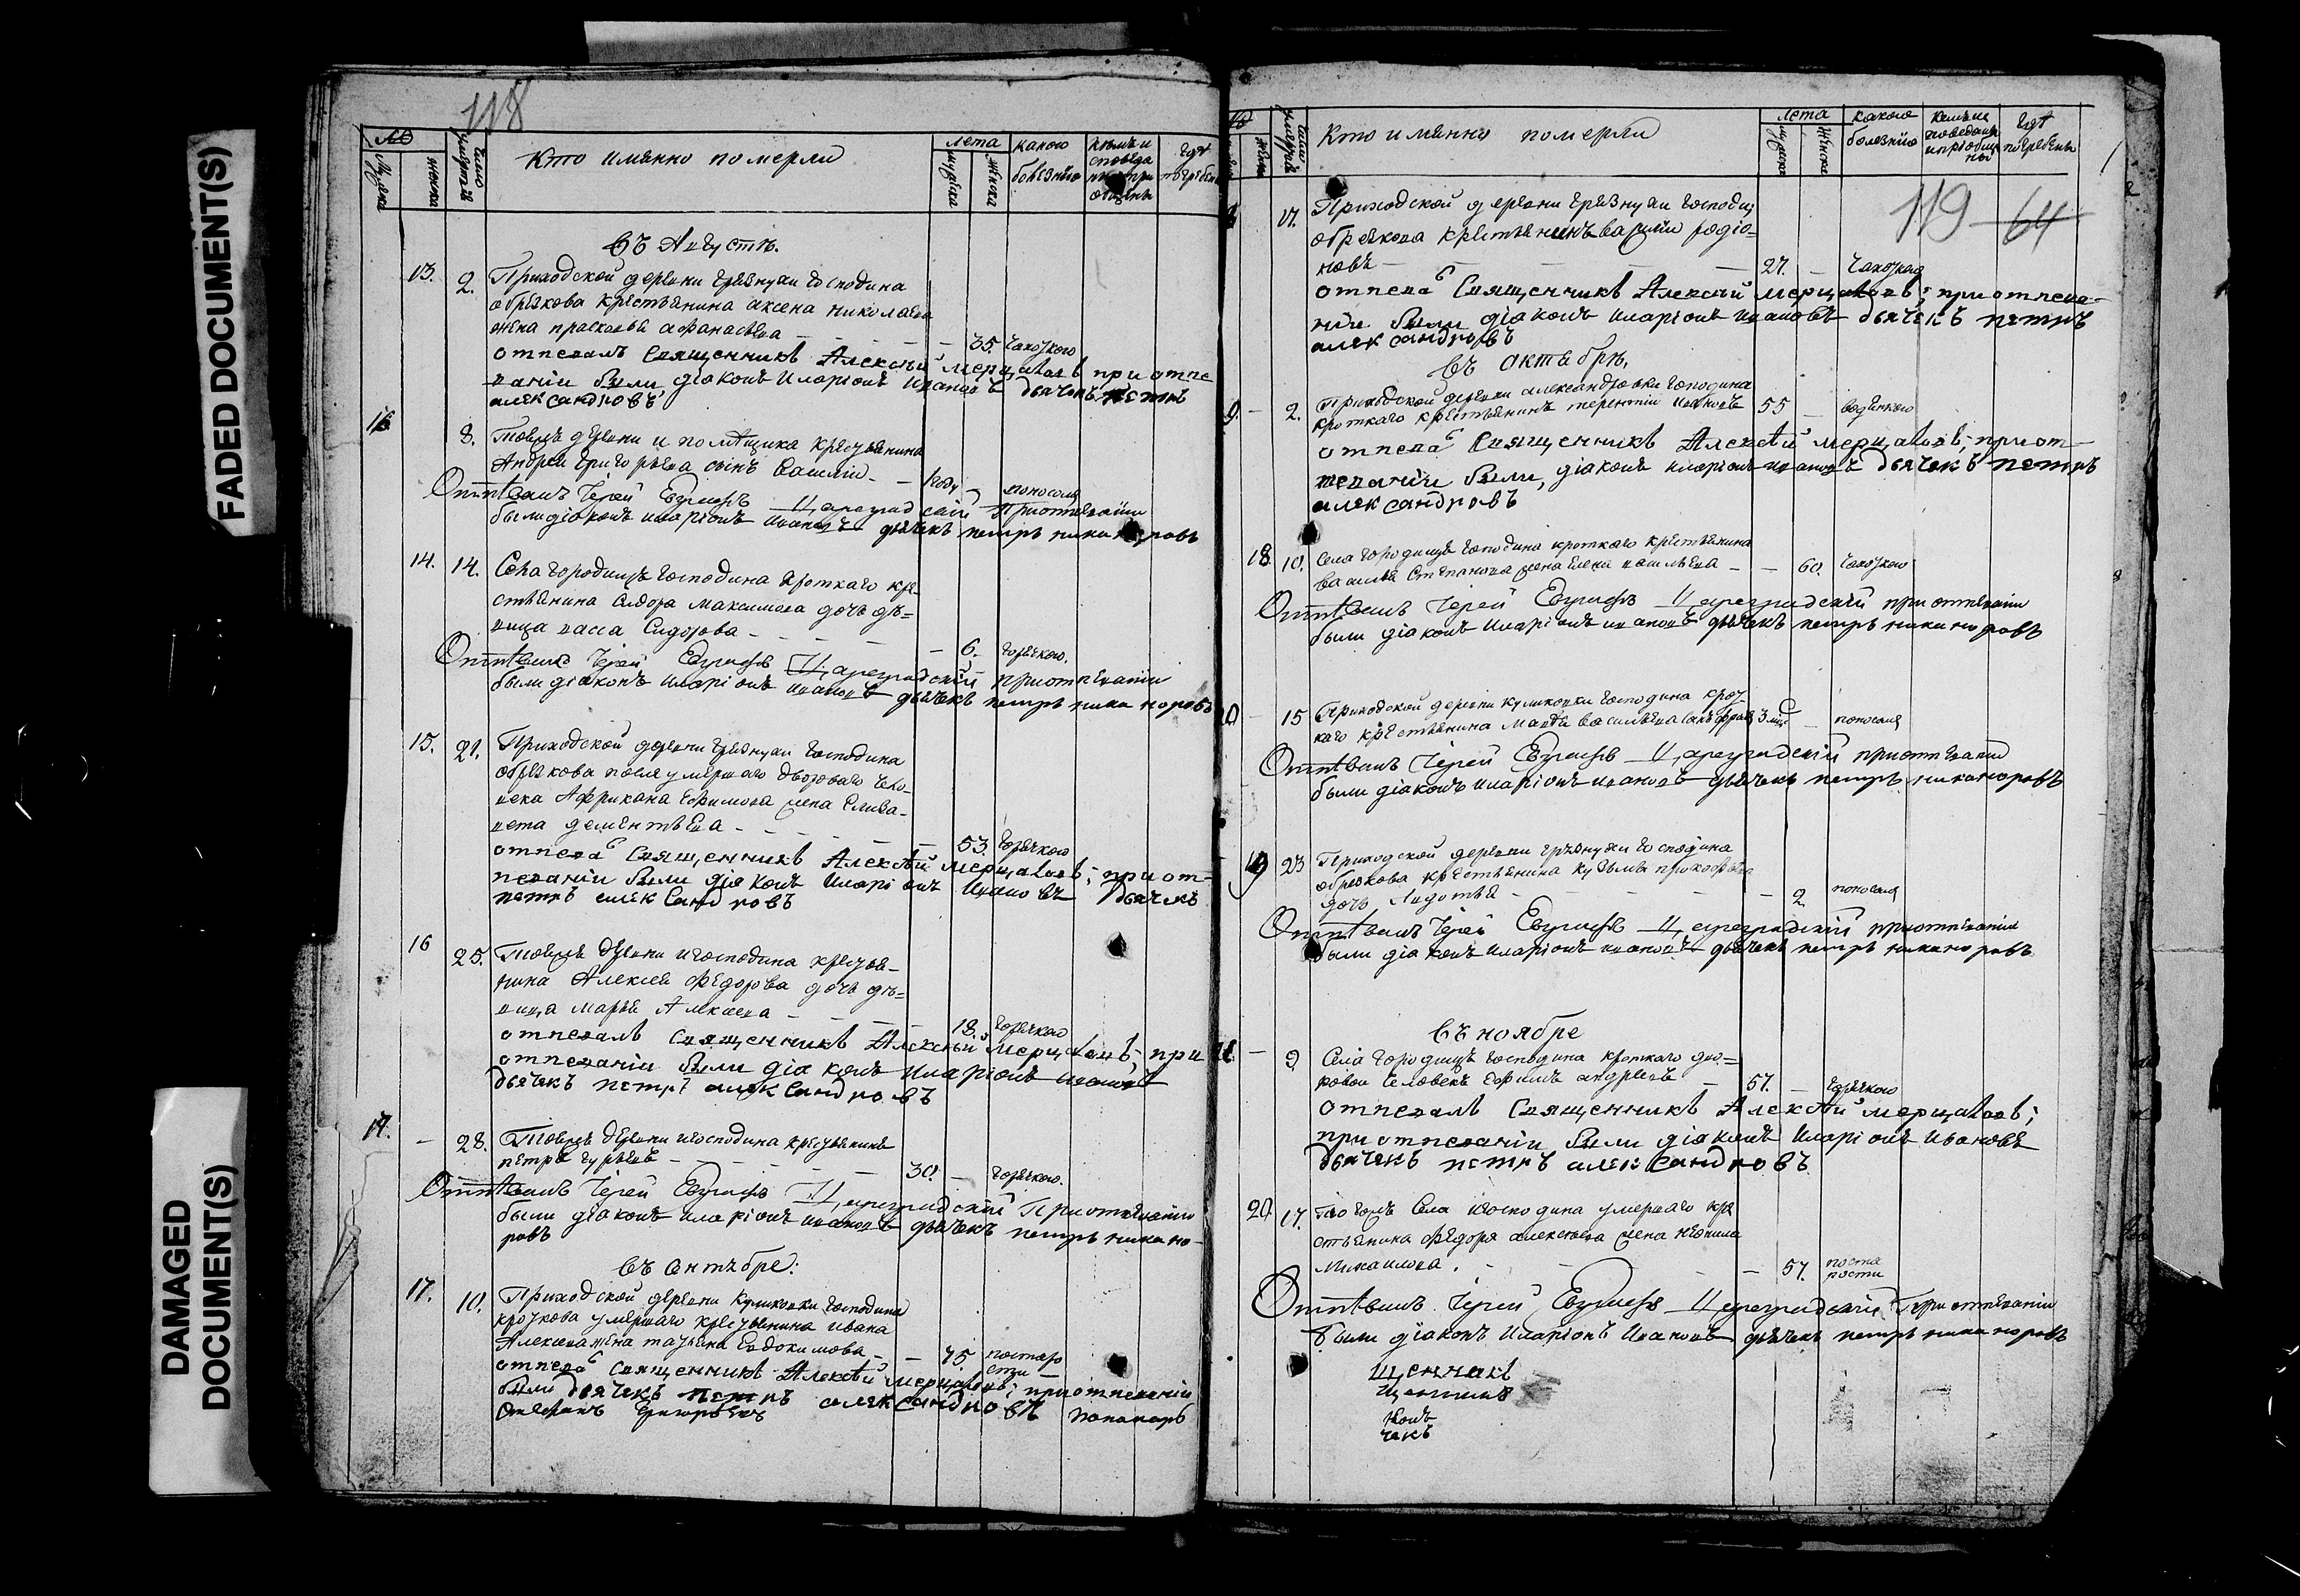 FADED DOCUMENT(S)
DAMAGED
DOCUMENT(S)
118
№
мужска
женска
число умертв
Кто имянно померли
лета
мужска
женска
какою болезнiю
кемъ исповеда
где погребены
въ Августе.
13. 2. Приходской деревни грязнухи господина
обрезкова крестьянина аксена николаева
жена прасковья афанасьева 35. чахоткою
отпевалъ Священникъ Алексей Мерцаловъ при отпе
ванiи были дiаконъ Иларiонъ Ивановъ дьячекъ петръ
александровъ
16 8. Тоежъ деревни и помещика крестьянина
Андрея григорьева сынъ василiй 1 году поносомъ
Отпевалъ Iерей Евграфъ Цареградскiй При отпеванiи
были дiаконъ иларiонъ ивановъ дьячекъ петръ никаноровъ
14. 14. Села городищъ господина кроткаго кре-
стьянина Сидора максимова дочь де=
вица васса Сидорова
6. горячкою.
Отпевалъ Iерей Евграфъ Цареградскiй при отпеванiи
были дiаконъ иларiонъ ивановъ дьячекъ петръ никаноровъ
15. 21. Приходской деревни грязнухи господина
обрезкова после умершаго двороваго чело-
века Африкана Ефимова жена Елиза-
вета дементьева
53. горячкою
отпева Священникъ Алексей Мерцаловъ; при от-
певанiи были дiаконъ Иларiонъ Ивановъ Дьячекъ
петръ александровъ
16 25. Тоежъ деревни и господина крестья-
нина Алексея Федорова дочь де=
вица марья Алексеева
18. горячкою
отпевалъ священникъ Алексей мерцаловъ; при
отпеванiи были дiаконъ иларiонъ ивановъ
дьячекъ петръ александровъ
17. 28. Тоежъ деревни и господина крестьянинъ
петръ гурьевъ 30. горячкою.
Отпевалъ Iерей Евграфъ Цареградскiй При отпеванiи
были дiаконъ иларiонъ ивановъ дьячекъ петръ никано-
ровъ
въ Сентябре:
17. 10. Приходской деревни Куликовки господина
кроткова умершаго крестьянина ивана
Алексеева жена татьяна Евдокимова 75. по старо
сти
отпева Священникъ Алексей мерцаловъ; при отпеванiи
были дьячекъ петръ александровъ пономарь
Григорьевъ
Кто имянно померли
лета
мужска
женска
какою болезнiю
где погребены
119
64
17. Приходской деревни грязнухи господи;
обрезкова крестьянинъ василiй родiо=
новъ 27. чахоткою
отпева Священникъ Алексей мерцаловъ; при отпева-
нiи были дiаконъ иларiонъ ивановъ дьячекъ петръ
александровъ
въ октябре,
9. 2. Приходской деревни александровки господина
кроткаго крестьянинъ терентiй ивановъ 55 водянкою
отпева Священникъ Алексей мерцаловъ; при от-
певанiи были, дiаконъ иларiонъ ивановъ дьячекъ петръ
александровъ
18. 10. Села городищъ господина кроткаго крестьянина
василья Степанова жена Елена васильева 60. чахоткою
Отпевалъ Iерей Евграфъ Цареградскiй при отпеванiи
были дiаконъ Иларiонъ ивановъ дьячекъ петръ никаноровъ
15 Приходской деревни куликовки господина крот-
каго крестьянина васильева сынъ 3 поносомъ
Отпевалъ Iерей Евграфъ Цареградскiй при отпеванiи
были дiаконъ иларiонъ ивановъ дьячекъ петръ никаноровъ
19 23 Приходской деревни грязнухи господина
обрезкова крестьянина Кузьмы прокофьева
дочь 2 поносомъ
Отпевалъ Iерей Евграфъ Цареградскiй при отпеванiи
были дiаконъ иларiонъ ивановъ дьячекъ петръ никаноровъ
въ ноябре
9 Села городищъ господина кроткаго дво=
ровой человекъ Ефимъ андреевъ 57. горячкою
отпевалъ Священникъ Алексей мерцаловъ;
при отпеванiи были дiаконъ Иларiонъ ивановъ
дьячекъ петръ александровъ
20. 17. Тогожъ Села и господина умершаго кре
стьянина Федора алексеева жена неонила
Михаилова. 57. по ста
рости
Отпевалъ Iерей Евграфъ Цареградскiй При отпеванiи
были дiаконъ Иларiонъ Ивановъ дьячекъ петръ никаноровъ
щенникъ
щенникъ
конъ
чекъ